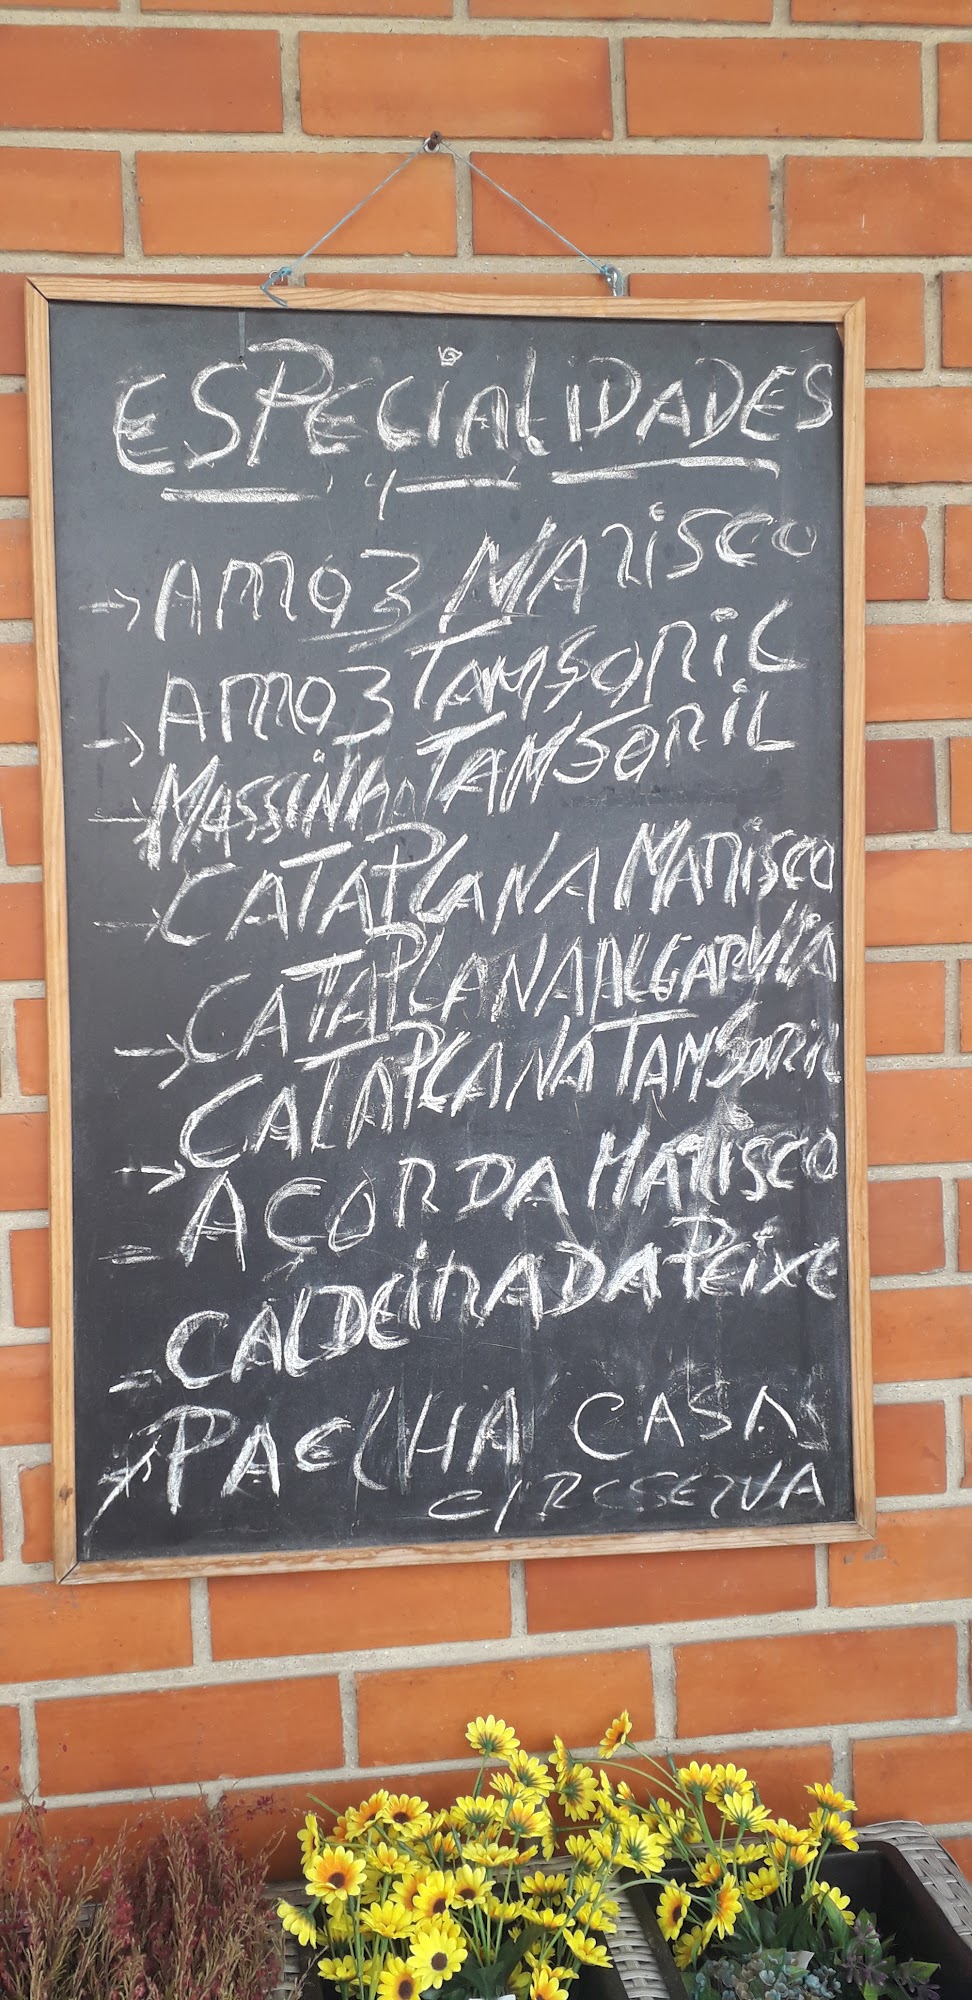 ESPECIALIDADES
→ ARROZ MARISCO
→ ARROZ TAMSORIL
→ MASSINHA TAMSORIL
→ CATAPLANA MARISCO
→ CATAPLANA ALGARVIA
→ CATAPLANA TAMSORIL
→ AÇORDA MARISCO
- CALDEIRADA PEIXE
- PAELHA CASA
C/RESERVA